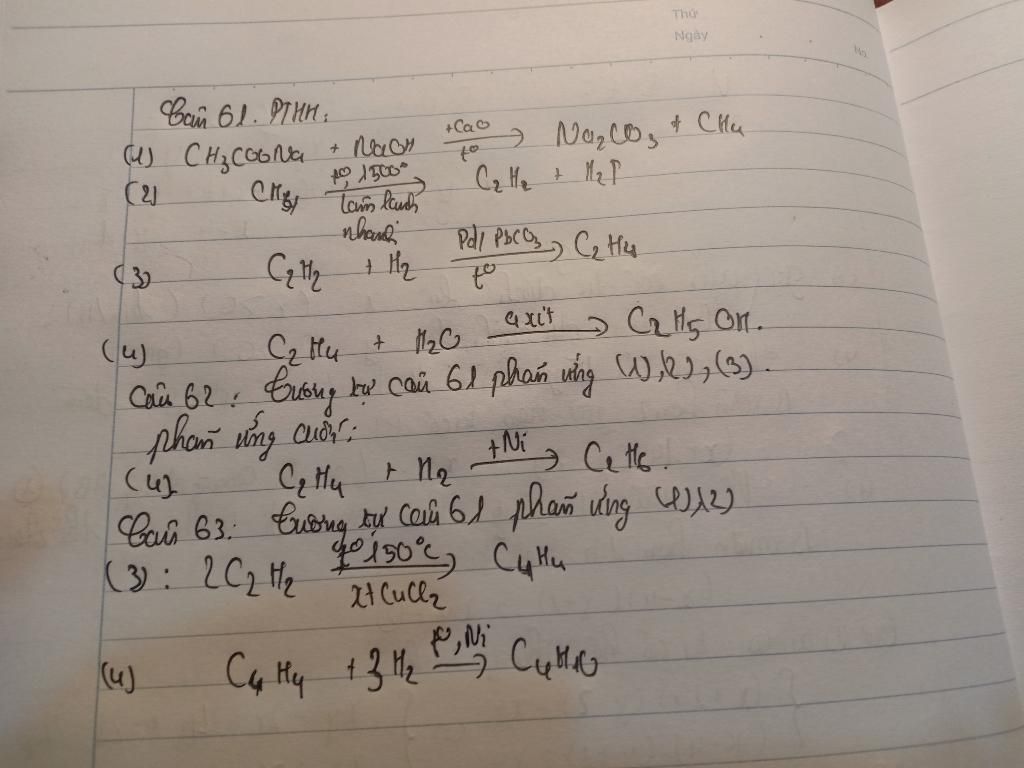 Thứ
Ngày
No.
Câu 61. PTHH:
(1) CH3COONa + NaOH +CaO → t° Na2CO3 + CH4
(2) CH4 t°, 1500° → làm lạnh nhanh C2H2 + H2↑
(3) C2H2 + H2 Pd/PbCO3 → t° C2H4
(4) C2H4 + H2O axit → C2H5OH.
Câu 62: Tương tự câu 61 phản ứng (1),(2),(3).
phản ứng cuối:
(4) C2H4 + H2 +Ni → C2H6.
Câu 63: Tương tự câu 61 phản ứng (1),(2)
(3): 2C2H2 t° 150°C → xt CuCl2 C4H4
(4) C4H4 + 3H2 t°, Ni → C4H10